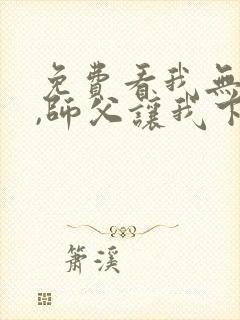 免費看我無
,師父讓我下
簫溪